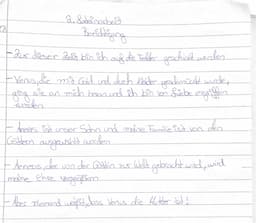 2. Schularbeit
Berichtigung
- Zur dieser Zeit bin ich auf die Felder geschickt worden
- Venus, die mit Gold und auch geschmückt wurde,
ging sie an mich heran und ich bin von Liebe ergriffen
worden
- Anneas ist unser Sohn und meine Familie ist von den
Göttern ausgewählt worden
- Anneas, der von der Göttin zur Welt gebracht wird, wird
meine Ehre vergrößern
- Aber niemand weiß, dass Venus die Mutter ist!